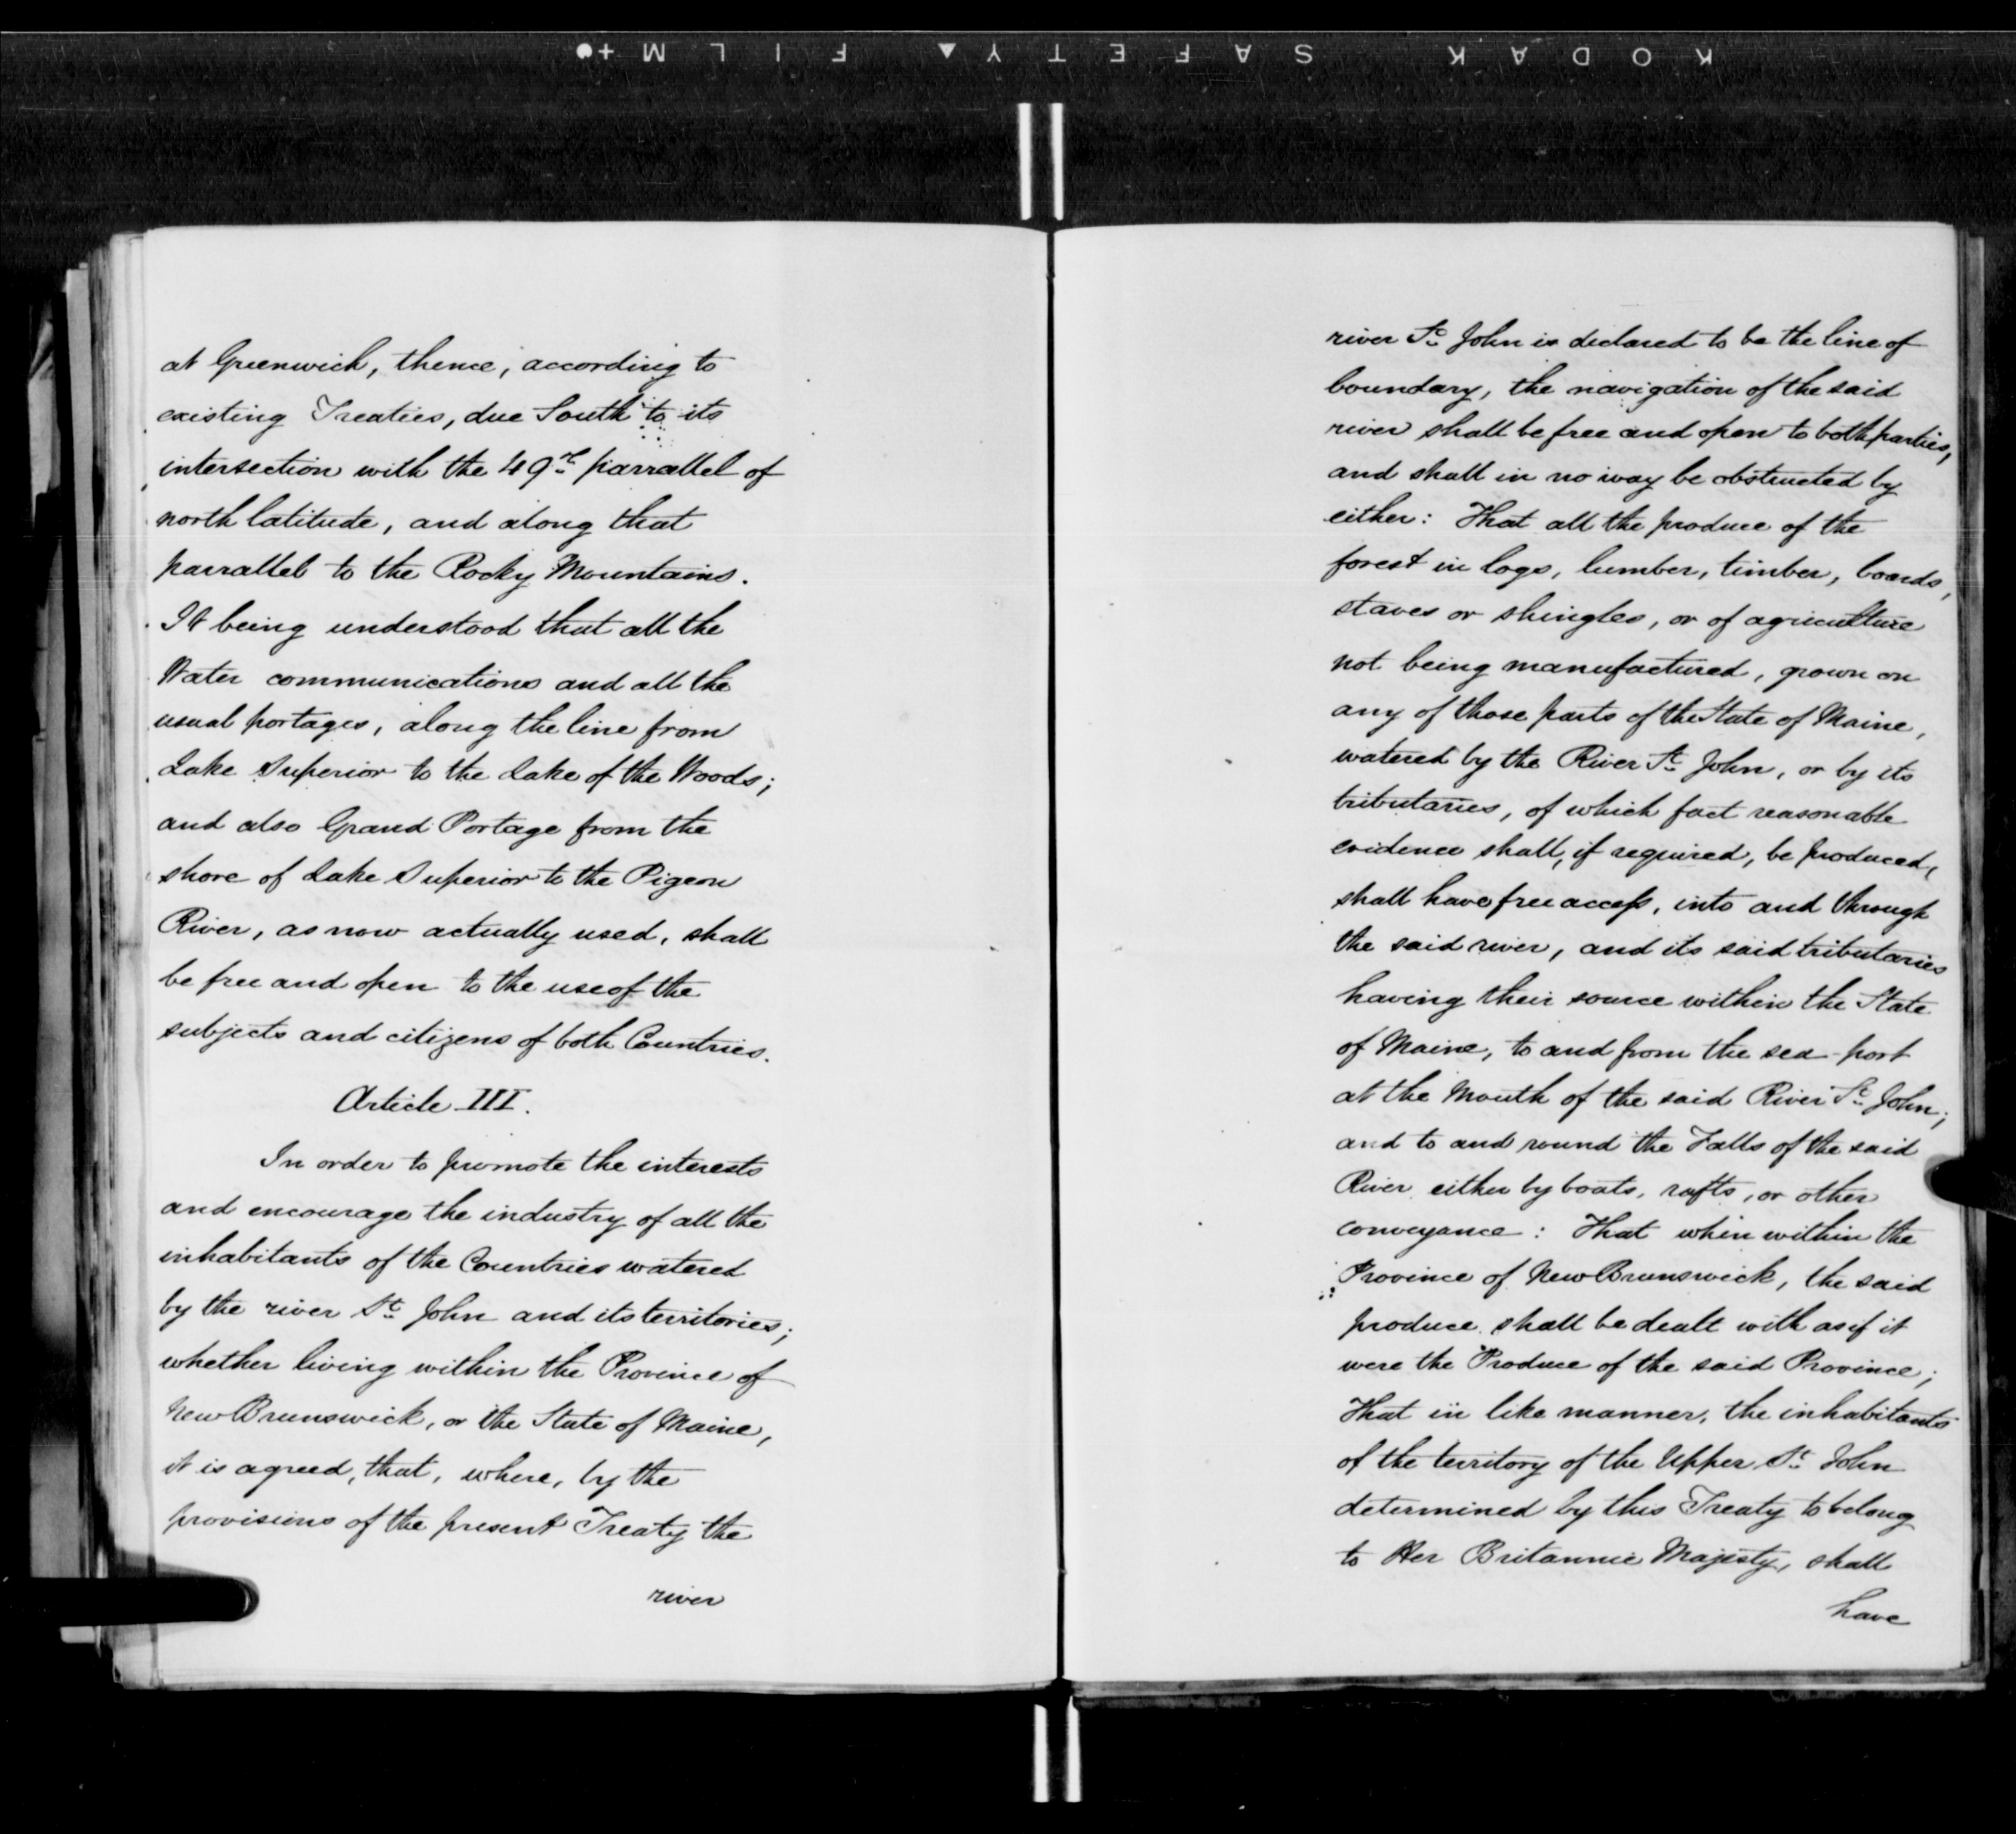 KODAK SAFETY▲ FILM +●
at Greenwich, thence, according to
existing Treaties, due South to its
intersection with the 49th parrallel of
north latitude, and along that
parrallel to the Rocky Mountains.
It being understood that all the
Water communications and all the
usual portages, along the line from
Lake Superior to the Lake of the Woods;
and also Grand Portage from the
shore of Lake Superior to the Pigeon
River, as now actually used, shall
be free and open to the use of the
subjects and citizens of both Countries.
Article III.
In order to promote the interests
and encourage the industry of all the
inhabitants of the Countries watered
by the river St. John and its territories;
whether living within the Province of
New Brunswick, or the State of Maine,
it is agreed, that, where, by the
provisions of the present Treaty the
river
river St. John is declared to be the line of
boundary, the navigation of the said
river shall be free and open to both parties,
and shall in no way be obstructed by
either: That all the produce of the
forest in logs, lumber, timber, boards,
staves or shingles, or of agriculture
not being manufactured, grown on
any of those parts of the State of Maine,
watered by the River St. John, or by its
tributaries, of which fact reasonable
evidence shall, if required, be produced,
shall have free access, into and through
the said river, and its said tributaries
having their source within the State
of Maine, to and from the sea-port
at the Mouth of the said River St. John;
and to and round the Falls of the said
River either by boats, rafts, or other
conveyance: That when within the
Province of New Brunswick, the said
produce shall be dealt with as if it
were the Produce of the said Province;
That in like manner, the inhabitants
of the territory of the Upper St. John
determined by this Treaty to belong
to Her Britannic Majesty, shall
have